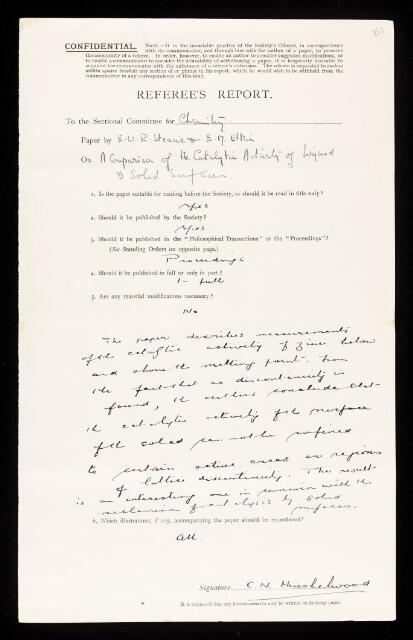 81
CONFIDENTIAL. NOTE.—It is the invariable practice of the Society's Officers, in correspondence
with the communicator, and through him with the author of a paper, to preserve
the anonymity of a referee. In order, however, to enable an author to consider suggested modifications, or
to enable a communicator to consider the desirability of withdrawing a paper, it is frequently desirable to
acquaint the communicator with the substance of a referee's criticisms. The referee is requested to enclose
within square brackets any section of or phrase in his report, which he would wish to be withheld from the
communicator in any correspondence of this kind.
REFEREE'S REPORT.
To the Sectional Committee for Chemistry
Paper by E. W. R. Steacie & E. M. Elkin
On A Comparison of the Catalytic Activity of Liquid
& Solid Surfaces.
1. Is the paper suitable for reading before the Society, or should it be read in title only?
Yes
2. Should it be published by the Society?
Yes
3. Should it be published in the "Philosophical Transactions" or the "Proceedings"?
(See Standing Orders on opposite page.)
Proceedings
4. Should it be published in full or only in part?
In full
5. Are any material modifications necessary?
No
The paper describes measurements
of the catalytic activity of zinc below
and above the melting point. From
the fact that no discontinuity is
found, the authors conclude that
the catalytic activity of the surface
of the solid can not be confined
to certain active areas or regions
of lattice discontinuity. The result
is an interesting one in connexion with the
mechanism of catalysis by solid
surfaces.
6. Which illustrations, if any, accompanying the paper should be reproduced?
All.
Signature C. N. Hinshelwood
It is requested that any further remarks may be written on foolscap paper.